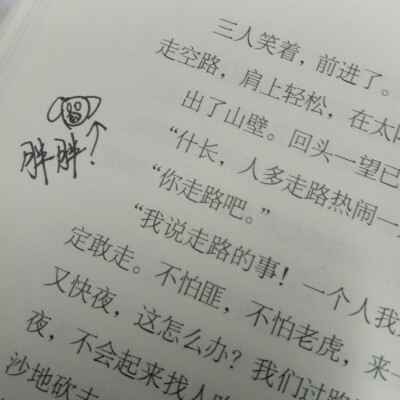 胖胖?
三人笑着，前进了。
走空路，肩上轻松，在太
出了山壁。回头一望已
“什长，人多走路热闹一
“你走路吧。”
“我说走路的事！一个人我
定敢走。不怕匪，不怕老虎，来一
又快夜，这怎么办？我们过路
夜，不会起来找人
沙地砍